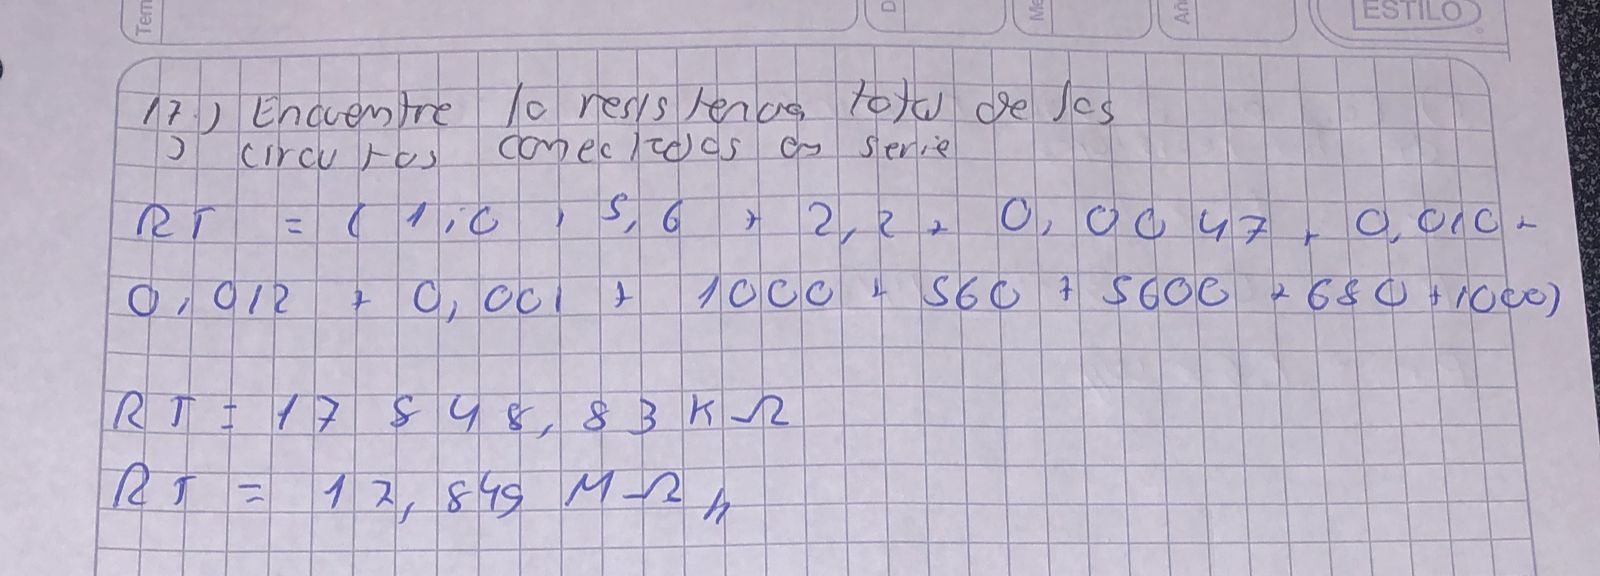 Tem D Me Añ ESTILO
17.) Encuentre la resistencia total de los
) circuitos conectados en serie
RT = ( 1,0 + 5,6 + 2,2 + 0,0047 + 0,010 +
0,012 + 0,001 + 1000 + 560 + 5600 + 680 + 1000)
RT = 17 848,83 KΩ
RT = 17,849 MΩ